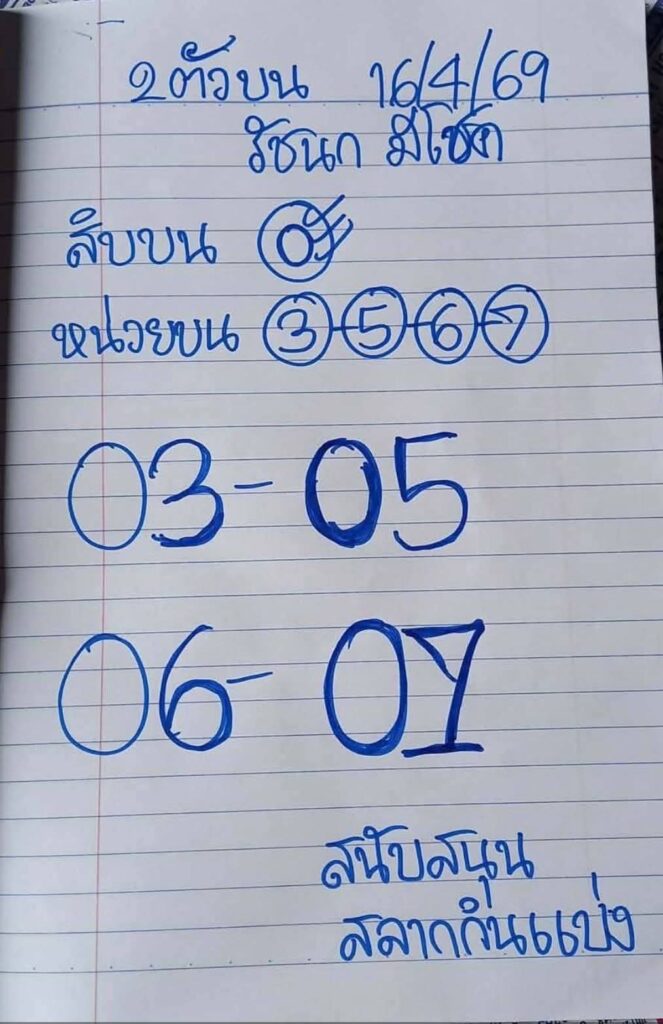 2ตัวบน 16/4/69
รัชนก มีโชค
สิบบน 0
หน่วยบน 3-5-6-7
03- 05
06- 07
สนับสนุน
สลากกินแบ่ง